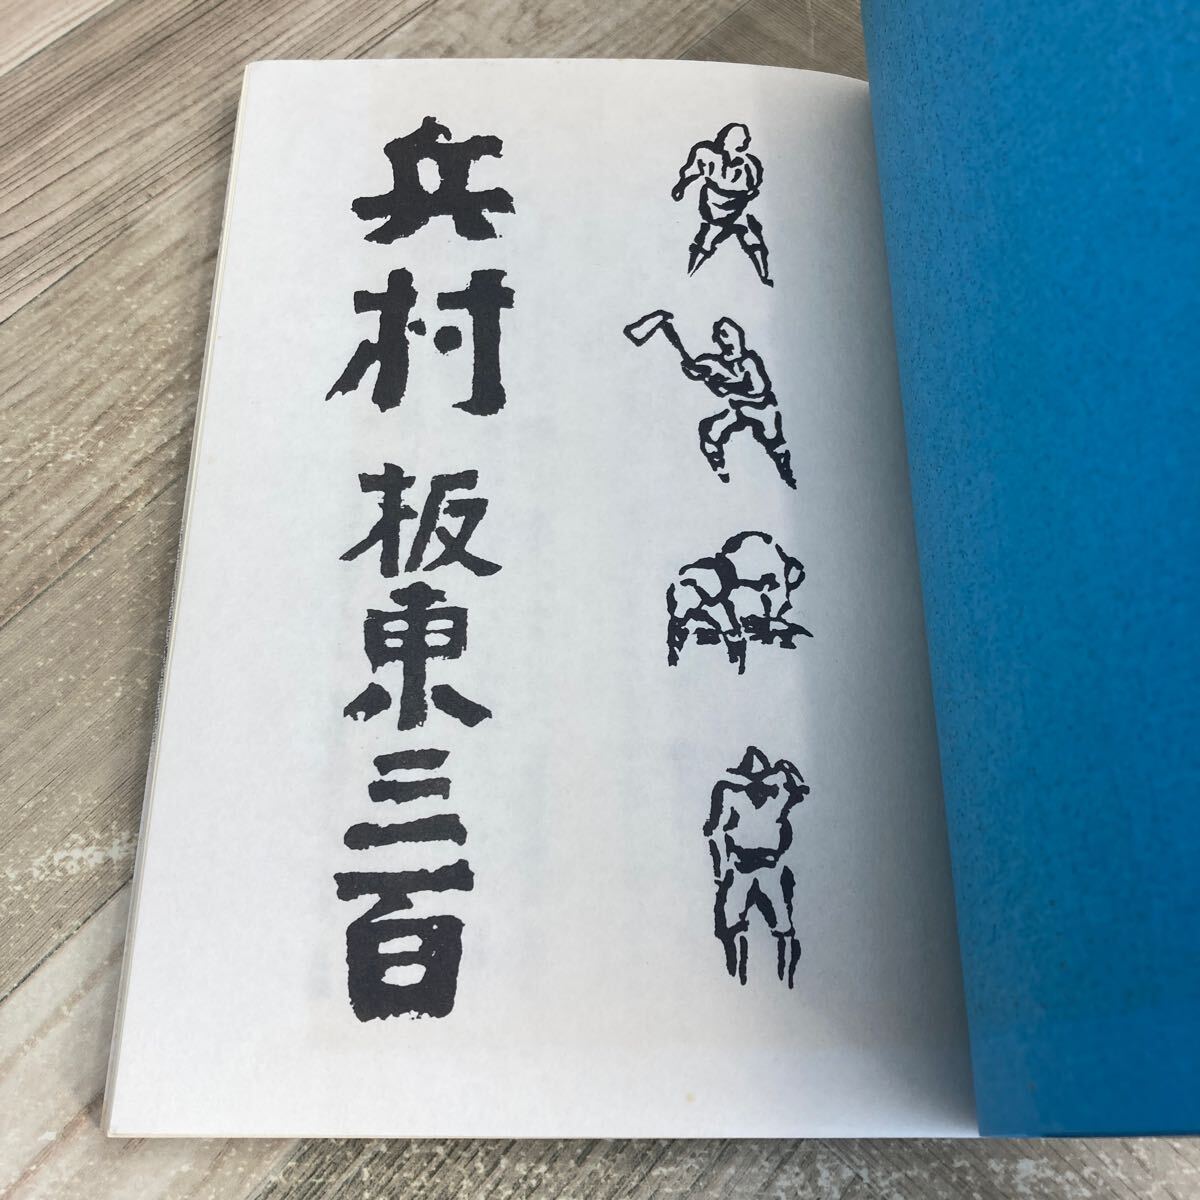 兵村 板東三百